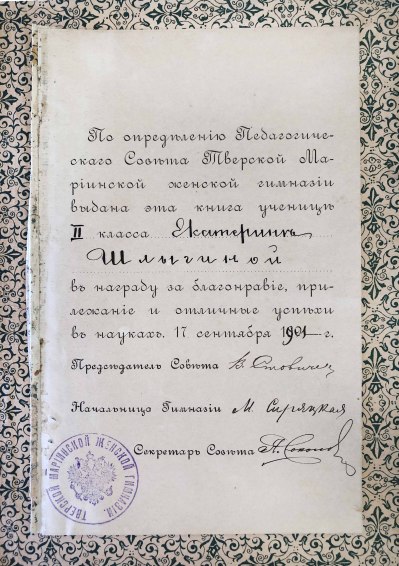 По опредѣленію Педагогиче-
скаго Совѣта Тверской Ма-
ріинской женской гимназіи
выдана эта книга ученицѣ
II класса Екатеринѣ
Шлыгиной
въ награду за благонравіе, при-
лежаніе и отличные успѣхи
въ наукахъ. 17 сентября 1901 г.
Предсѣдатель Совѣта
Начальница Гимназіи М.
Секретарь Совѣта
ТВЕРСКОЙ МАРІИНСКОЙ ЖЕНСКОЙ ГИМНАЗІИ